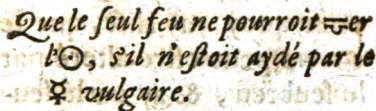 Que le ſeul feu ne pourroit 🝞er
l'☉, s'il n'eſtoit aydé par le
☿ vulgaire.